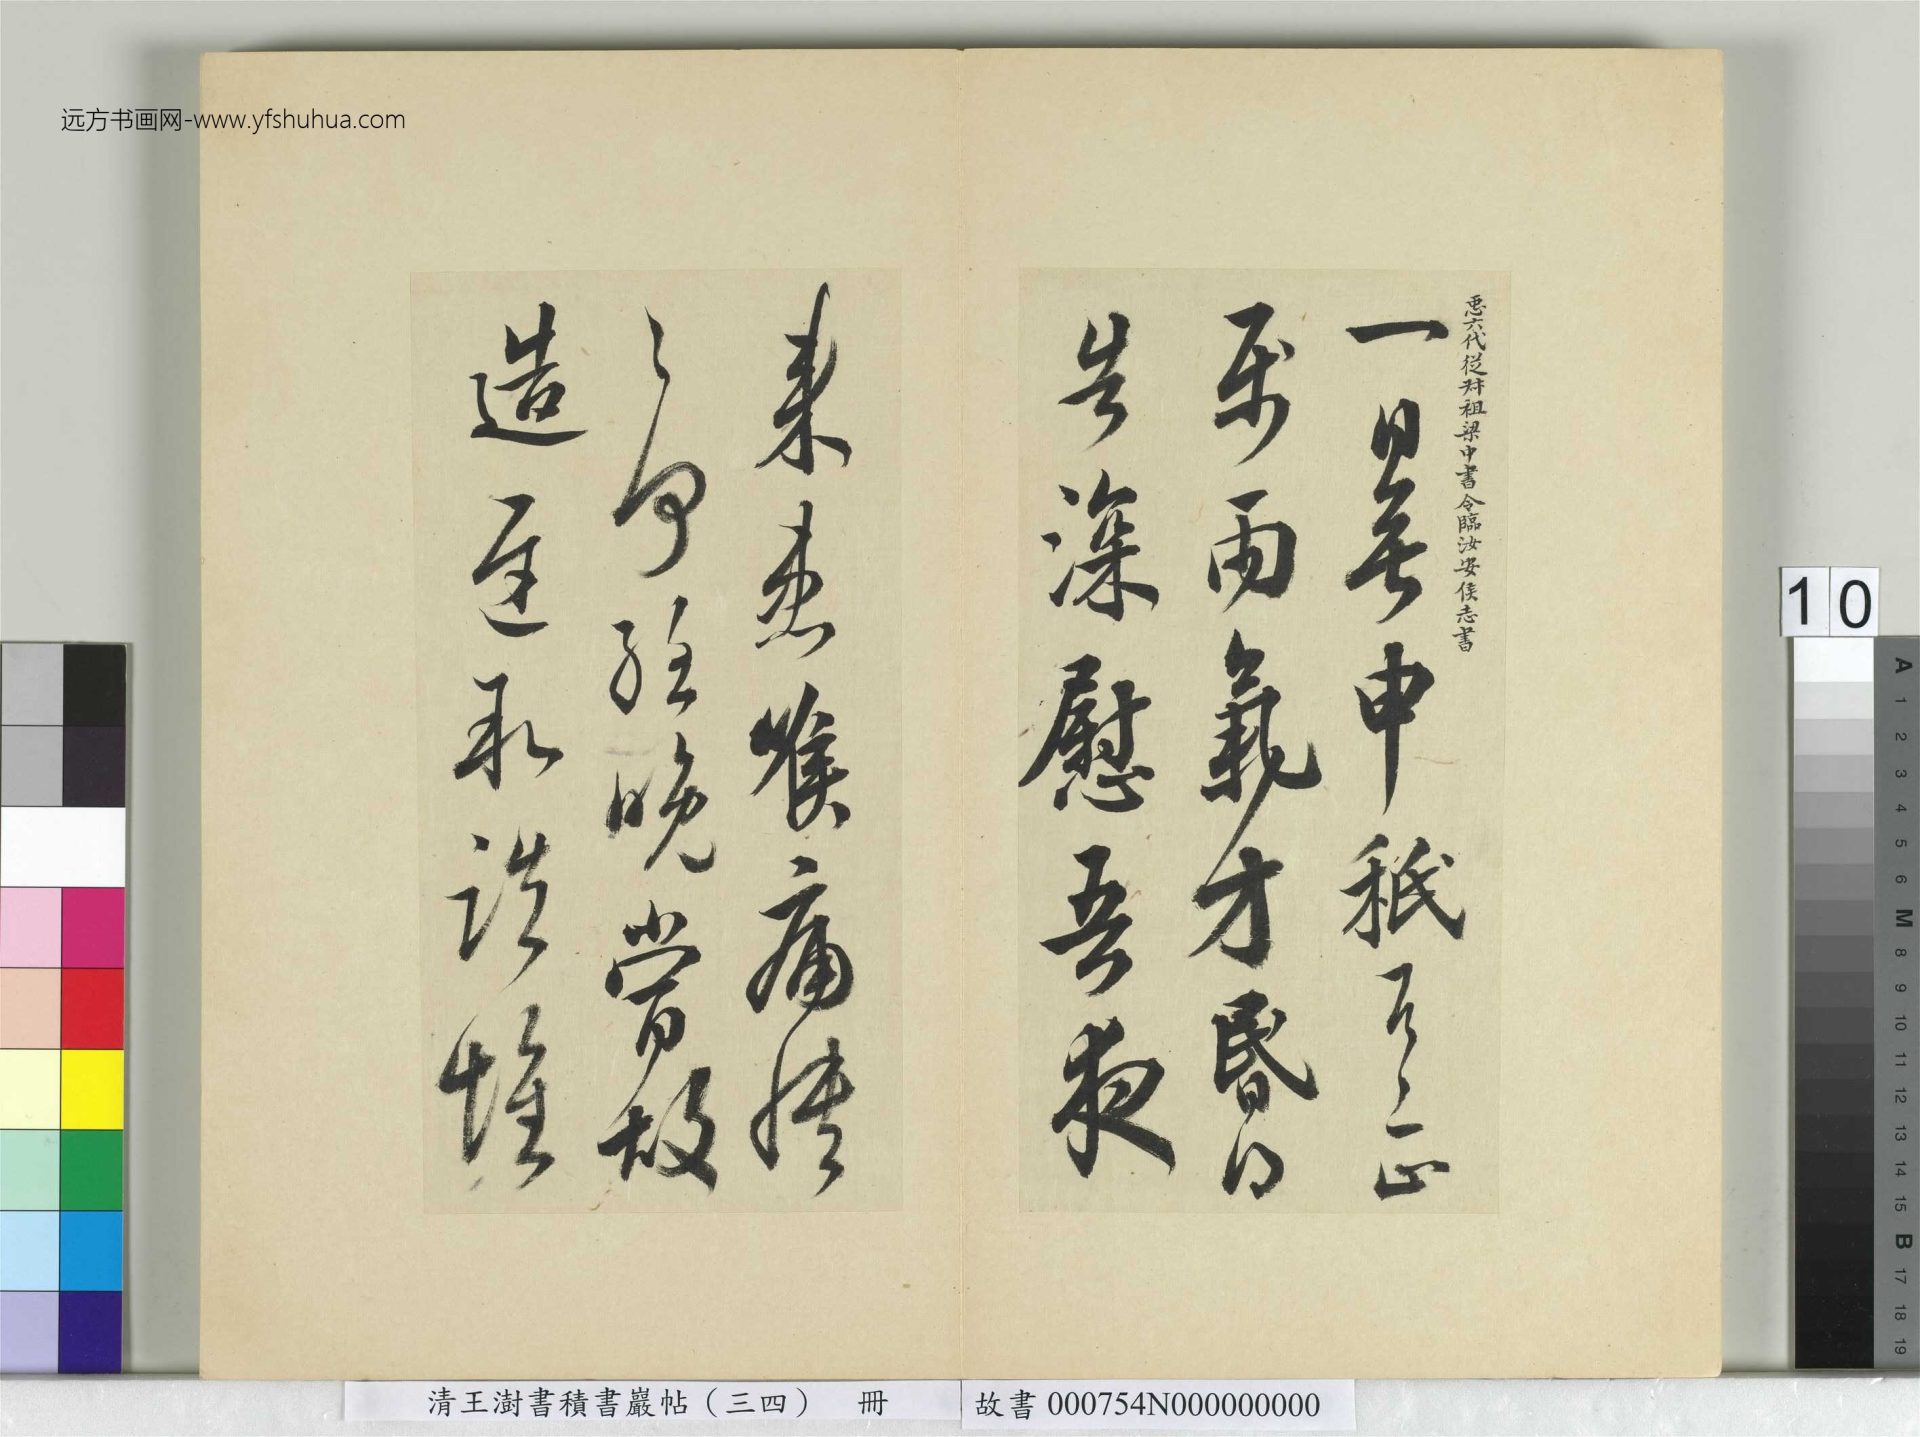 远方书画网-www.yfshuhua.com
六代從叔祖梁中書令臨汝安侯志書
一日無申秪百々正
属雨氣方昏得
告深慰吾夜
來患喉痛憒
々何強晚當故
造遲敘諮惟
10
A
1
2
3
4
5
6
M
8
9
10
11
12
13
14
15
B
17
18
19
清王澍書積書巖帖（三四） 冊
故書 000754N000000000